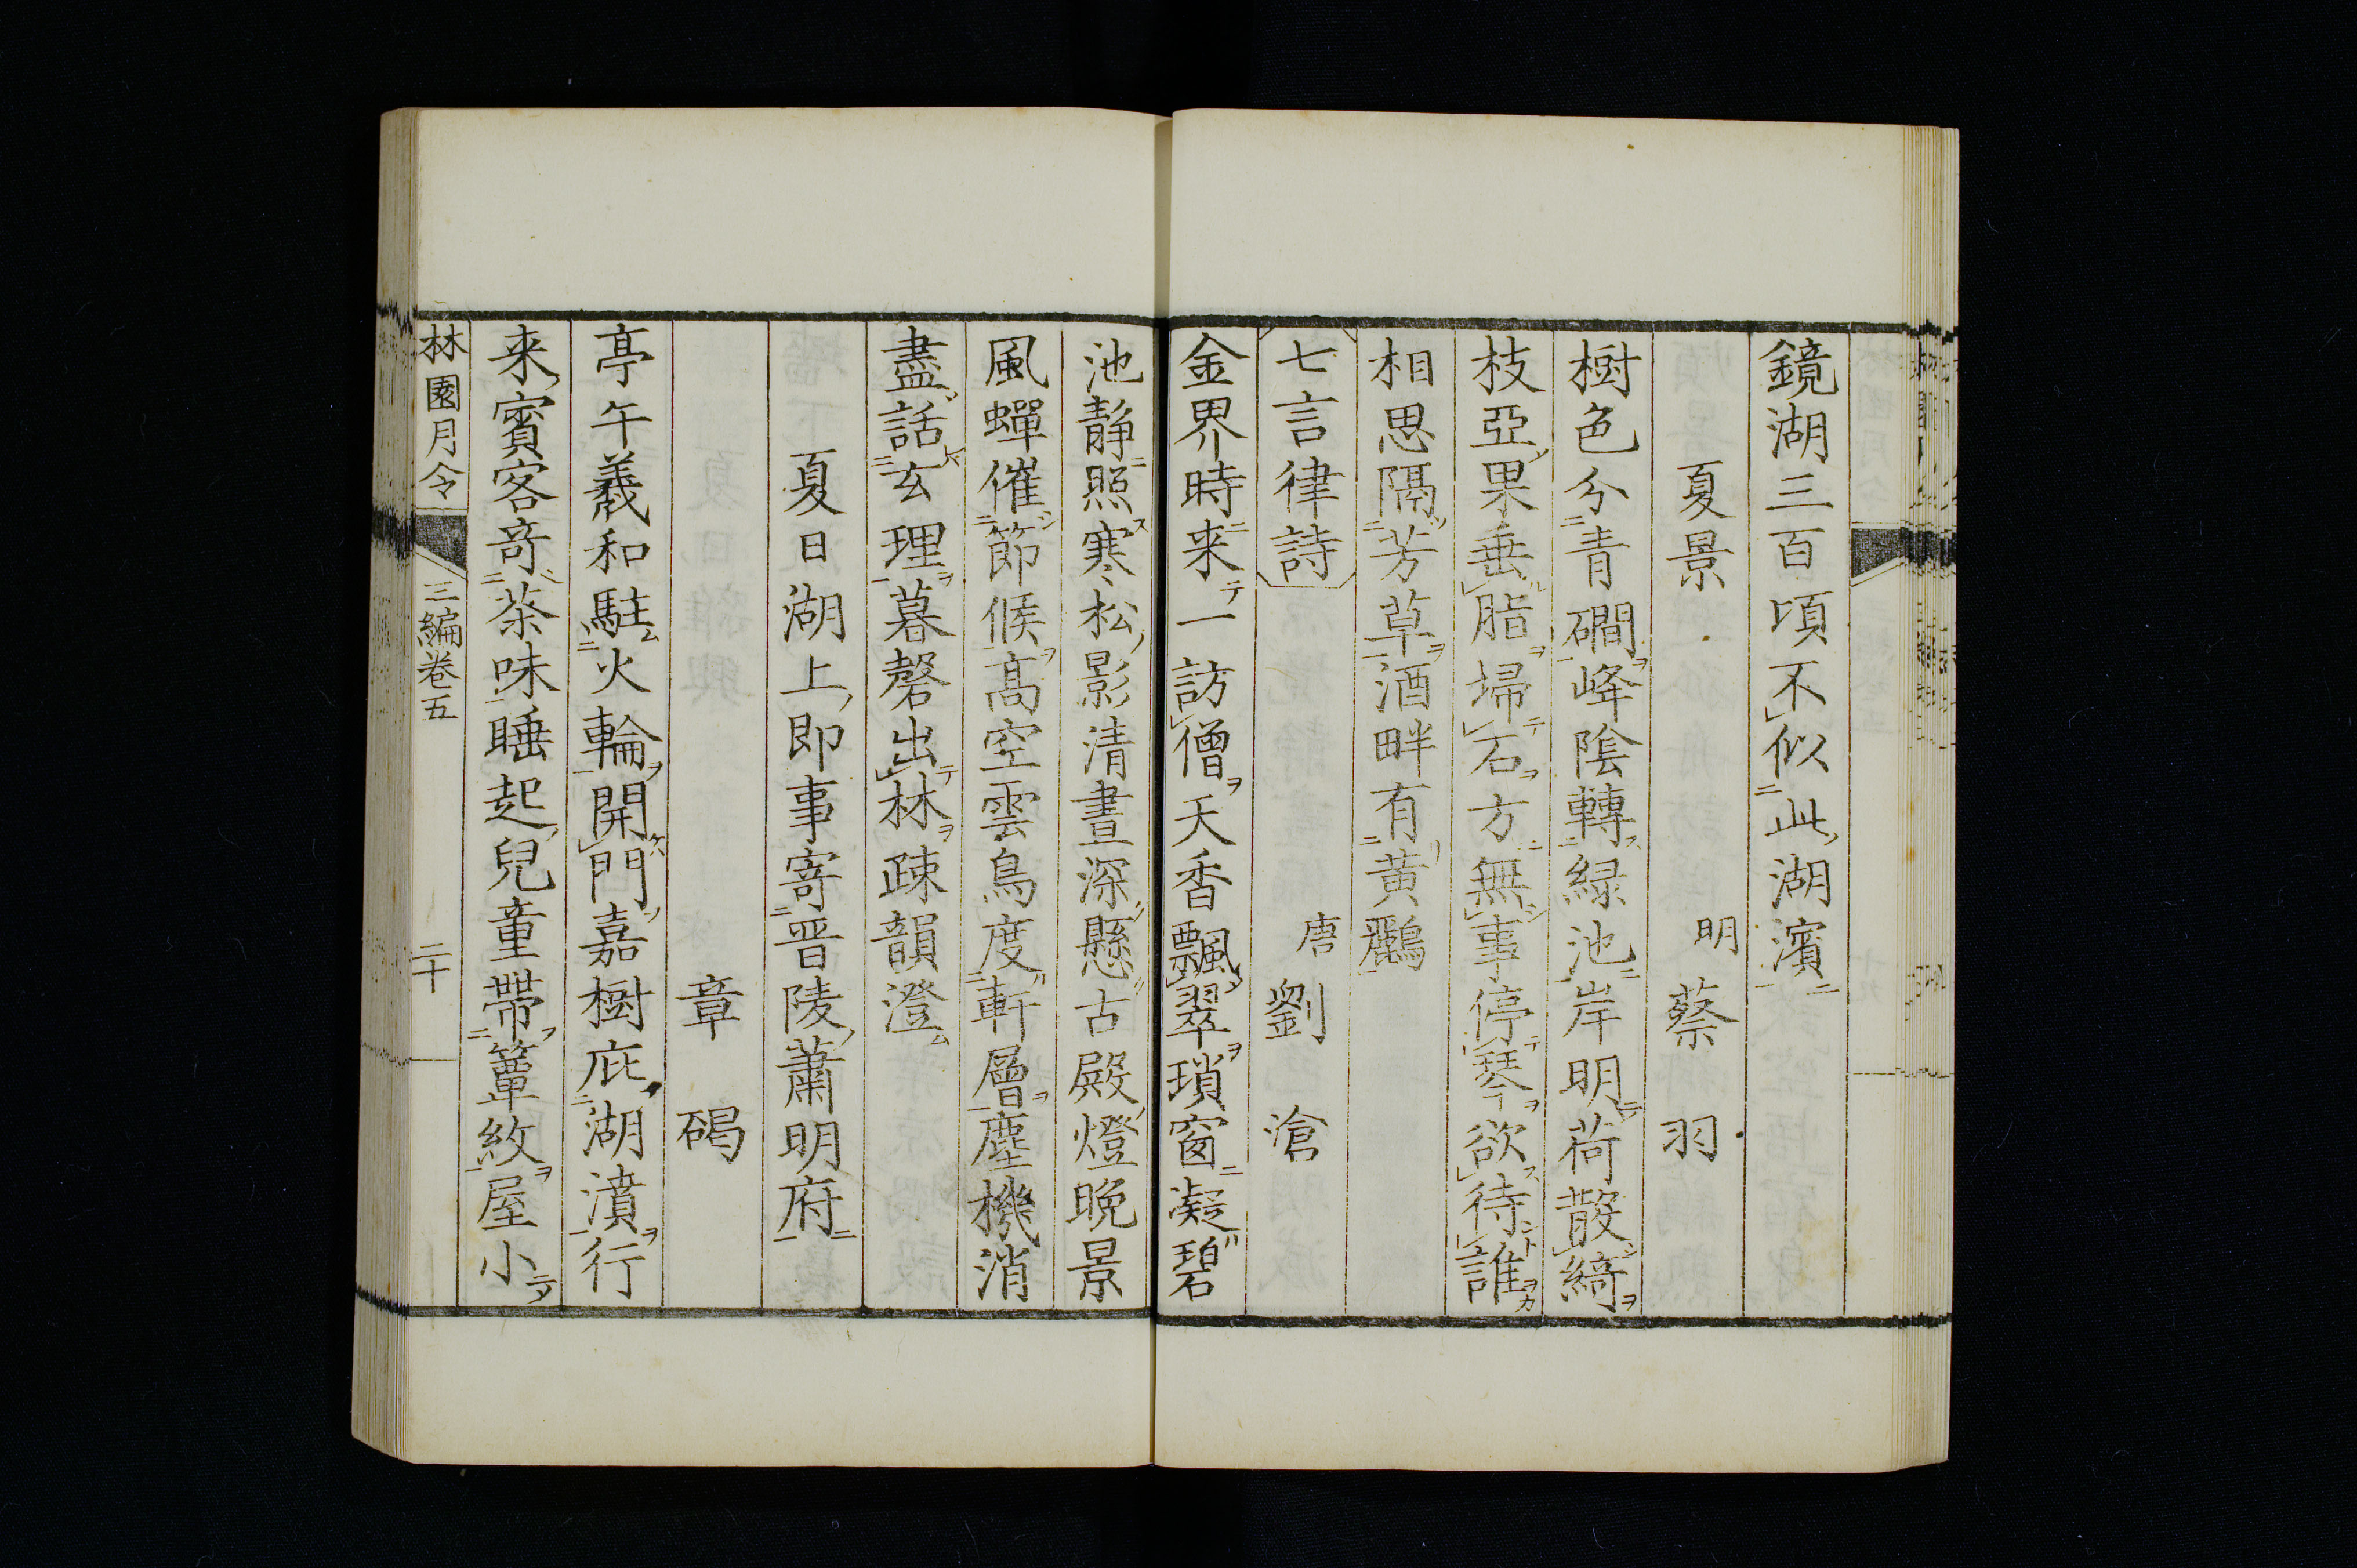 鏡湖三百頃不似此湖濱
夏景
明蔡羽
樹色分青磵峰陰轉緑池岸明荷散綺
枝亞果垂脂埽石方無事停琴欲待誰
相思隔芳草酒畔有黄鸝
七言律詩
唐劉滄
金界時来一訪僧天香飄翠瑣窗凝碧
池静照寒松影清晝深懸古殿燈晚景
風蟬催節候高空雲鳥度軒層塵機消
盡話玄理暮磬出林疎韻澄
夏日湖上即事寄晋陵蕭明府
章碣
亭午羲和駐火輪開門嘉樹庇湖濆行
来賓客奇茶味睡起兒童帶簟紋屋小
林園月令
三編卷五
二十